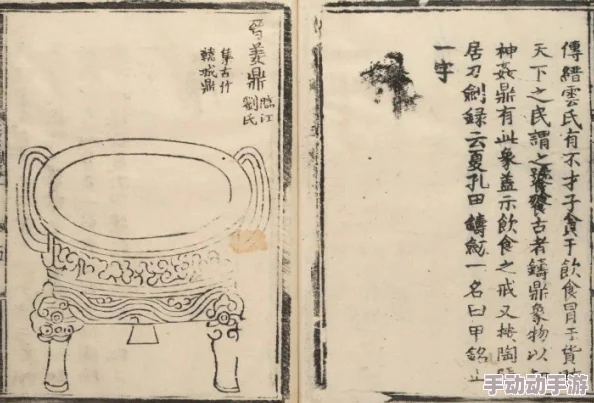 傳縉雲氏有不才子貪于飲食冒于貨賄
天下之民謂之饕餮古者鑄鼎象物以知
神姦鼎有此象蓋示飲食之戒又按陶
居刀劍錄云夏孔田鑄一名曰甲銘止
一字
晉姜鼎
臨江
劉氏
集古作
韓城鼎
手动动手游